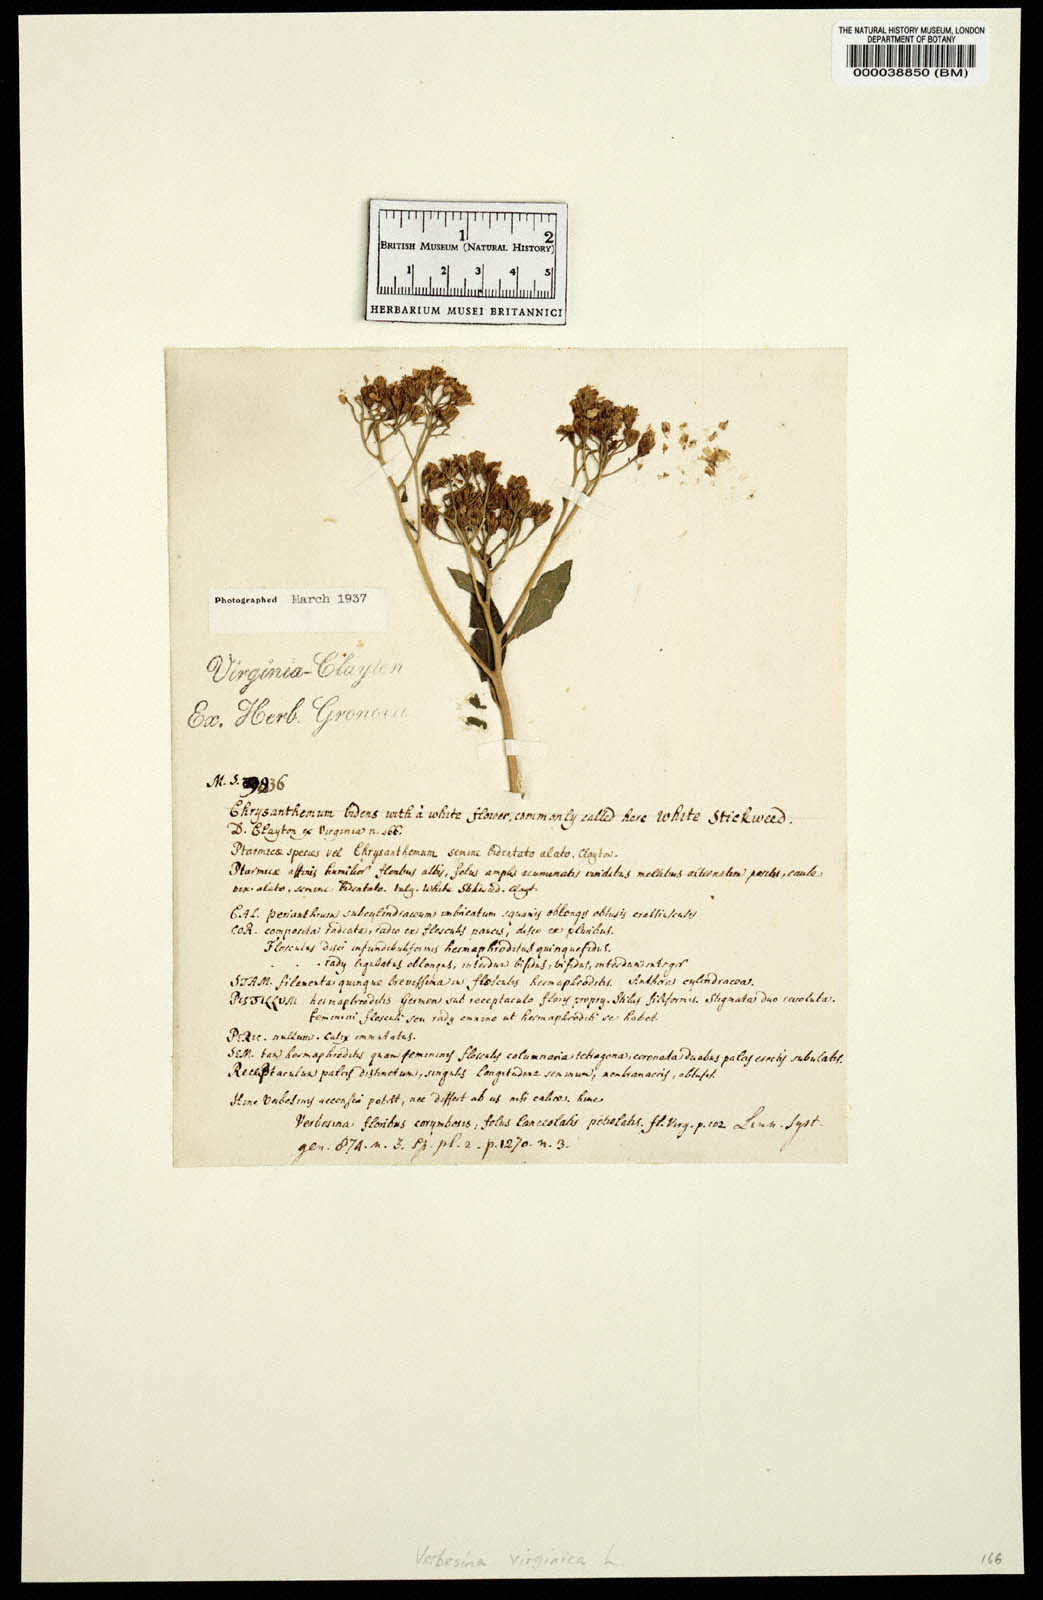 THE NATURAL HISTORY MUSEUM, LONDON
DEPARTMENT OF BOTANY
000038850 (BM)
1 2
BRITISH MUSEUM (NATURAL HISTORY)
1 2 3 4 5
HERBARIUM MUSEI BRITANNICI
Photographed March 1937
Virginia-Clayton
Ex. Herb. Gronov
M. S. 36
Chrysanthemum bidens with a white flower, commonly called here white Stickweed.
D. Clayton ex Virginia n. 166.
Ptarmicæ species vel Chrysanthemum semine bidentato alato. Clayton.
Ptarmicæ affinis humilior floribus albis, folus amplis acuminatis viridibus mollibus alternatim positis, caule
vix alato. semine bidentato. vulg. White Stikweed. Clayt.
CAL. perianthium subcylindraceum imbricatum squamis oblongis obtusis crassiusculis
COR. composita radiata, radio ex flosculis paucis, disco ex pluribus.
Flosculus disci infundibuliformis hermaphroditus quinquefidus.
. . . rady ligulatus oblongus, interdum bifidus, interdum integer
STAM. filamenta quinque brevissima in flosculis hermaphroditis. Anthera cylindracea.
PISTILLUM hermaphroditis Germen sub receptaculo floris propry. Stilus filiformis. Stigmata duo revoluta.
feminini flosculi seu rady omnino ut hermaphroditi se habet.
PERIC. nullum. Calix immutatus.
SEM. tam hermaphroditis quam femininis flosculis columnaria tetragona, coronata duabus paleis erectis subulatis.
Receptaculum paleis distinctum, singulis longitudine seminum, membranaceis, obtusis.
Hinc Verbesinis accenseri potest, nec differt ab iis nisi calice. hinc
Verbesina floribus corymbosis, folus lanceolatis petiolatis. fl. Virg. p. 102 Linn. Syst.
gen. 874. n. 3. Sp. pl. 2. p. 1270. n. 3.
Verbesina virginica L.
166